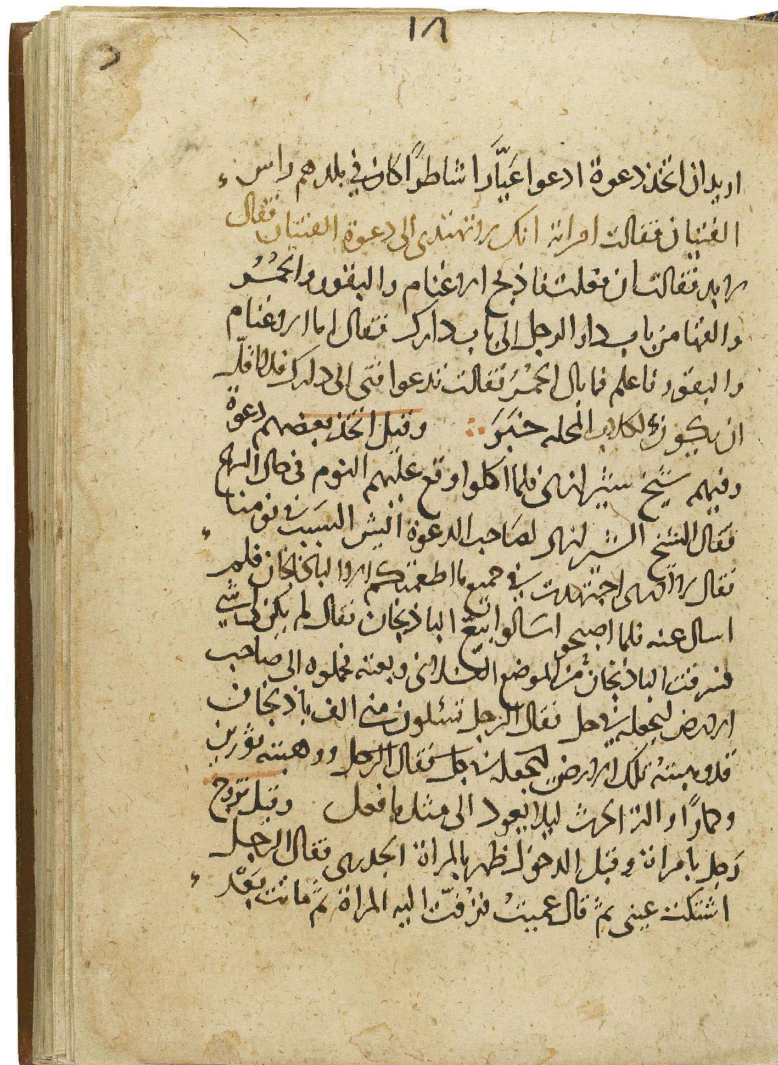 ١٨
اريد ان اتخذ دعوة ادعوا عيّارا شاطرًا كان في بلدهم راس
الفتيان فقالت امراته انك لا تهتدى الى دعوة الفتيان فقال
لا بد فقالت ان فعلت فاذبح الاغنام والبقور والحُمُر
والقها من باب دار الرجل الى باب دارك فقال اما الاغنام
والبقور فاعلم فما بال الحُمُر فقالت تدعوا فتى الى دارك فلا اقلّ
ان يكون لكلاب المحله خَبَرَ وقيل اتخذ بعضهم دعوة
وفيهم شيخ شيرازى فلما اكلوا وقع عليهم النوم في حال
فقال الشيخ الشيرازى لصاحب الدعوة ايش السبب في نومنا
فقال لا ادرى اجتهدت في جميع ما اطعمتكم الا الباذنجان فلم
اسال عنه فلما اصبحوا سالوا بيّع الباذنجان فقال لم يكن لى شي
فسرقت الباذنجان من الموضع الفلانى وبعته فحملوه الى صاحب
الارض ليجعله في حل فقال الرجل تسئلون منى الف باذنجان
قد وهبته تلك الارض ليجعله في حل فقال الرجل ووهبته ثورين
وحمارًا والة الحرث ليلا يعود الى مثل ما فعل وقيل تزوج
رجل بامراة وقبل الدخول ظهر بالمراة الجدرى فقال الرجل
اشتكت عينى ثم قال عميتُ فزفّت اليه المراة ثم ماتت بَعْدَ